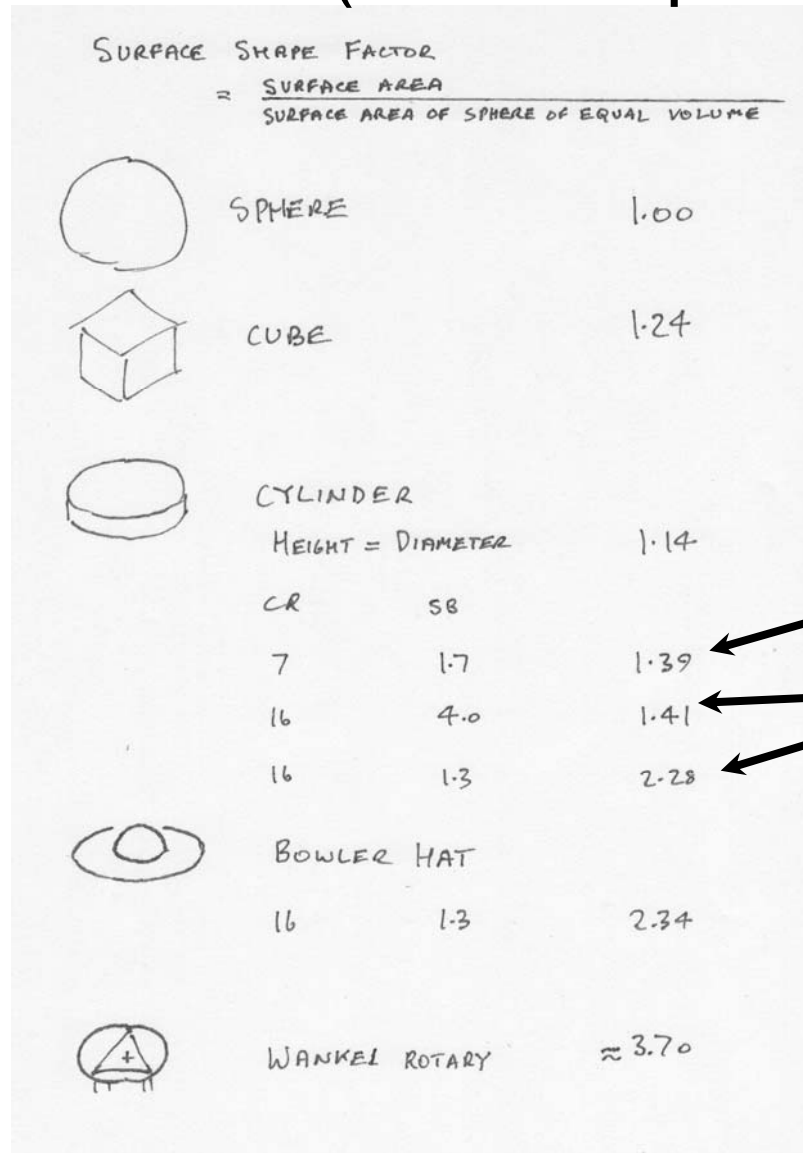 SURFACE SHAPE FACTOR
= SURFACE AREA
SURFACE AREA OF SPHERE OF EQUAL VOLUME
SPHERE 1.00
CUBE 1.24
CYLINDER
HEIGHT = DIAMETER 1.14
CR SB
7 1.7 1.39
16 4.0 1.41
16 1.3 2.28
BOWLER HAT
16 1.3 2.34
WANKEL ROTARY ≈ 3.70